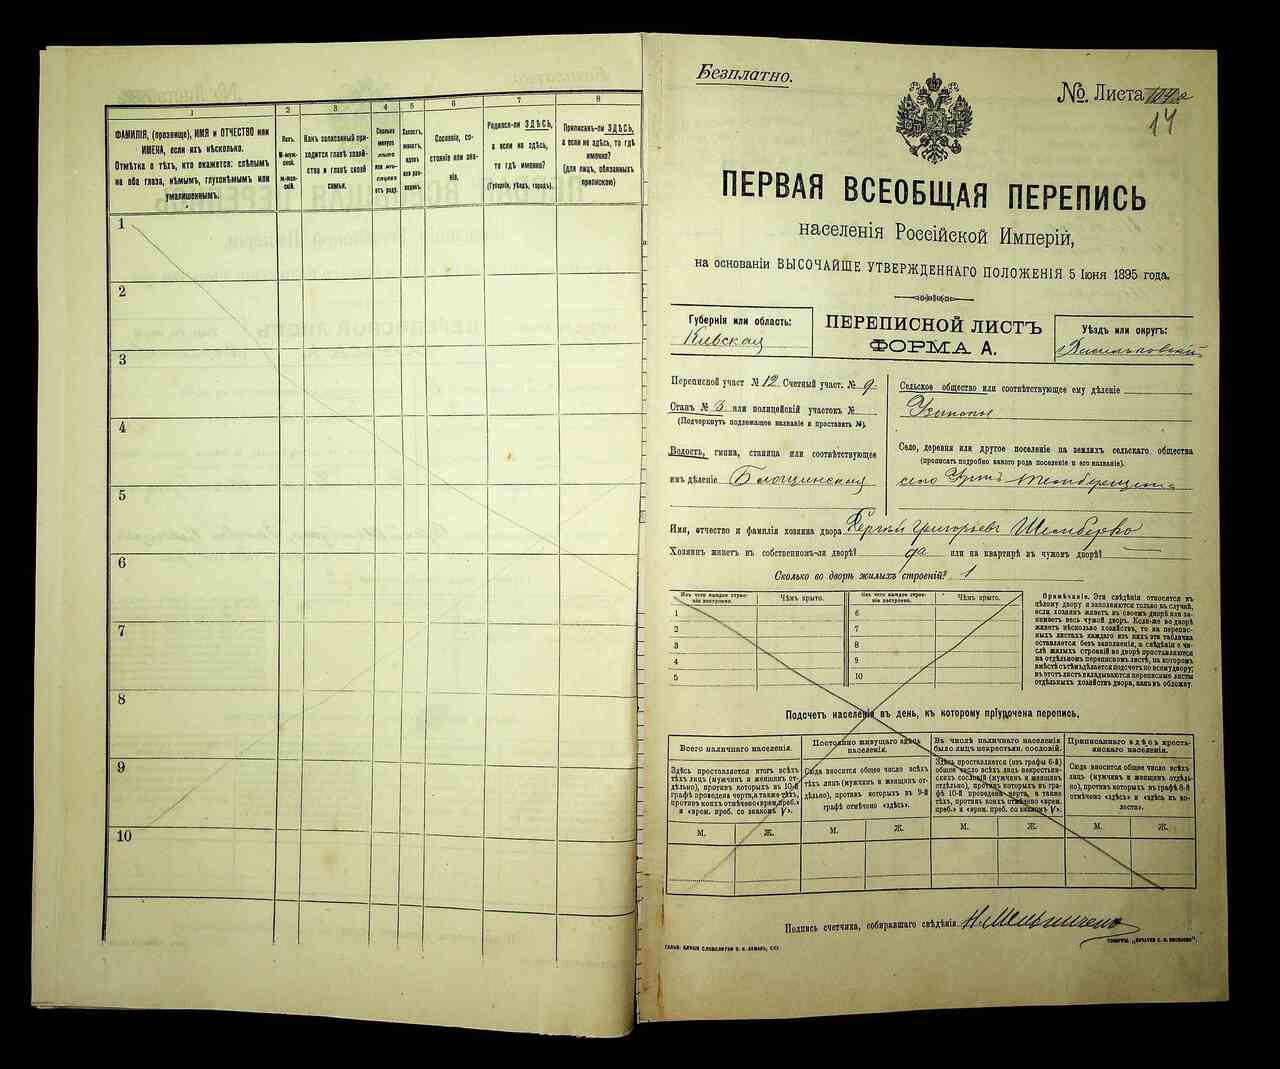 1
ФАМИЛІЯ, (прозвище), ИМЯ и ОТЧЕСТВО или
ИМЕНА, если ихъ нѣсколько.
Отмѣтка о тѣхъ, кто окажется: слѣпымъ
на оба глаза, нѣмымъ, глухонѣмымъ или
умалишеннымъ.
2
Полъ.
М-муж-
ской.
Ж-жен-
скій.
3
Какъ записанный при-
ходится главѣ хозяй-
ства и главѣ своей
семьи.
4
Сколько
минуло
лѣтъ
или мѣ-
сяцевъ
отъ роду.
5
Холостъ,
женатъ,
вдовъ
или раз-
веденъ.
6
Сословіе, со-
стояніе или зва-
ніе.
7
Родился-ли ЗДѢСЬ,
а если не здѣсь,
то гдѣ именно?
(Губернія, уѣздъ, городъ).
8
Приписанъ-ли ЗДѢСЬ,
а если не здѣсь, то гдѣ
именно?
(для лицъ, обязанныхъ
припискою)
1
2
3
4
5
6
7
8
9
10
Безплатно.
№ Листа
14
ПЕРВАЯ ВСЕОБЩАЯ ПЕРЕПИСЬ
населенія Россійской Имперій,
на основаніи ВЫСОЧАЙШЕ УТВЕРЖДЕННАГО ПОЛОЖЕНІЯ 5 Іюня 1895 года.
Губернія или область:
Кіевская
ПЕРЕПИСНОЙ ЛИСТЪ
ФОРМА А.
Уѣздъ или округъ:
Васильковскій
Переписной участ № 12 Счетный участ. № 9
Станъ № 3 или полицейскій участокъ №
(Подчеркнуть подлежащее названіе и проставить №).
Волость, гмина, станица или соотвѣтствующее
имъ дѣленіе
Сельское общество или соотвѣтствующее ему дѣленіе
Село, деревня или другое поселеніе на земляхъ сельскаго общества
(прописать подробно какого рода поселеніе и его названіе).
село
Имя, отчество и фамилія хозяина двора Сергѣй Григорьевъ Шемберко
Хозяинъ живетъ въ собственномъ-ли дворѣ? да или на квартирѣ въ чужомъ дворѣ? —
Сколько во дворѣ жилыхъ строеній? 1
Изъ чего каждое строе-
ніе построено.
Чѣмъ крыто.
Изъ чего каждое строе-
ніе построено.
Чѣмъ крыто.
1
2
3
4
5
6
7
8
9
10
Примѣчаніе. Эти свѣдѣнія относятся къ
цѣлому двору и заполняются только въ случаѣ,
если хозяинъ живетъ въ своемъ дворѣ или за-
нимаетъ весь чужой дворъ. Если-же во дворѣ
живетъ нѣсколько хозяйствъ, то на перепис-
ныхъ листахъ каждаго изъ нихъ эта табличка
оставляется безъ заполненія, а свѣдѣнія о чи-
слѣ жилыхъ строеній во дворѣ проставляются
на отдѣльномъ переписномъ листѣ, на которомъ
вмѣстѣ съ тѣмъ дѣлается подсчетъ по всему двору;
въ этотъ листъ вкладываются переписные листы
отдѣльныхъ хозяйствъ двора, какъ въ обложку.
Подсчетъ населенія въ день, къ которому пріурочена перепись.
Всего наличнаго населенія.
Здѣсь проставляется итогъ всѣхъ
тѣхъ лицъ (мужчинъ и женщинъ от-
дѣльно), противъ которыхъ въ 10-й
графѣ проведена черта, а также тѣхъ,
противъ коихъ отмѣчено «врем. преб.»
и «врем. преб. со знакомъ V».
Постоянно живущаго здѣсь
населенія.
Сюда вносится общее число всѣхъ
лицъ (мужчинъ и женщинъ от-
дѣльно), противъ которыхъ въ 9-й
графѣ отмѣчено «здѣсь».
Въ числѣ наличнаго населенія
было лицъ некрестьян. сословій.
Здѣсь проставляется (изъ графы 6-й)
общее число всѣхъ лицъ некрестьян-
скихъ сословій (мужчинъ и женщинъ
отдѣльно), противъ которыхъ въ гра-
фѣ 10-й проведена черта, а также
тѣхъ, противъ коихъ отмѣчено «врем.
преб.» и «врем. преб. со знакомъ V».
Приписаннаго здѣсь кресть-
янскаго населенія.
Сюда вносится общее число всѣхъ
лицъ (мужчинъ и женщинъ отдѣль-
но), противъ которыхъ въ графѣ 8-й
отмѣчено «здѣсь» и «здѣсь въ во-
лости».
М. Ж. М. Ж. М. Ж. М. Ж.
Подпись счетчика, собиравшаго свѣдѣнія